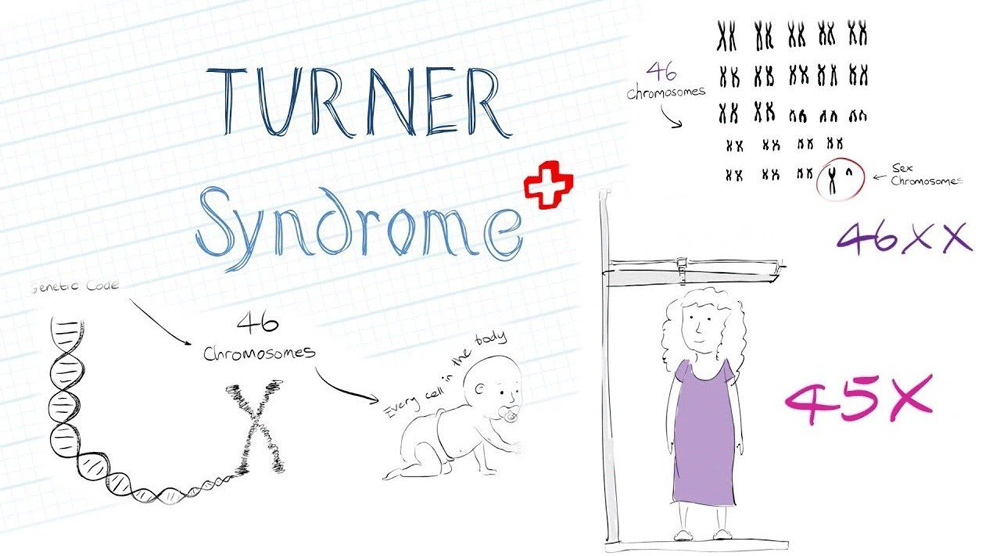 TURNER
Syndrome
Genetic Code
46
Chromosomes
Every cell in the body
46
Chromosomes
Sex
Chromosomes
46XX
45X